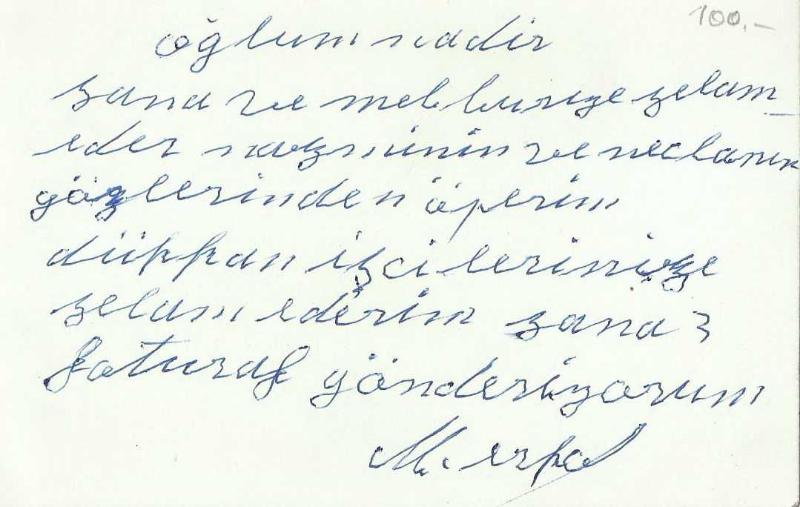 100,-
oğlum nadir
sana ve mebrureye selam
eder nazminin ve neclanın
gözlerinden öperim
düppan işcilerinize
selam ederim sana 3
faturaf gönderiyorum
M. erpa